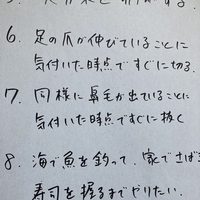 6. 足の爪が伸びていることに
気付いた時点ですぐに切る.
7. 同様に鼻毛が出ていることに
気付いた時点ですぐに抜く
8. 海で魚を釣って、家でさばき
寿司を握るまでやりたい.